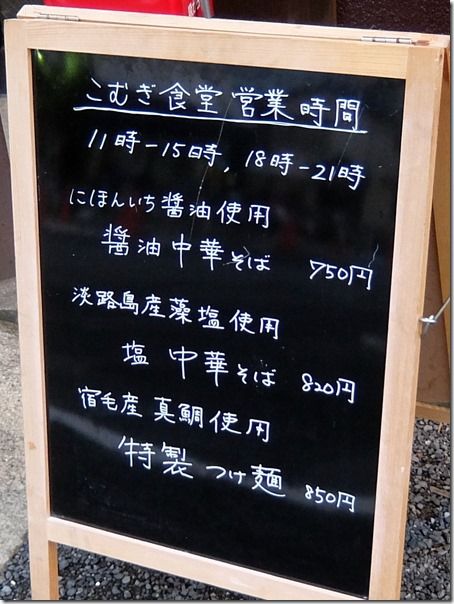 こむぎ食堂 営業時間
11時-15時, 18時-21時
にほんいち醤油使用
醤油中華そば 750円
淡路島産藻塩使用
塩 中華そば 820円
宿毛産 真鯛使用
特製 つけ麺 850円